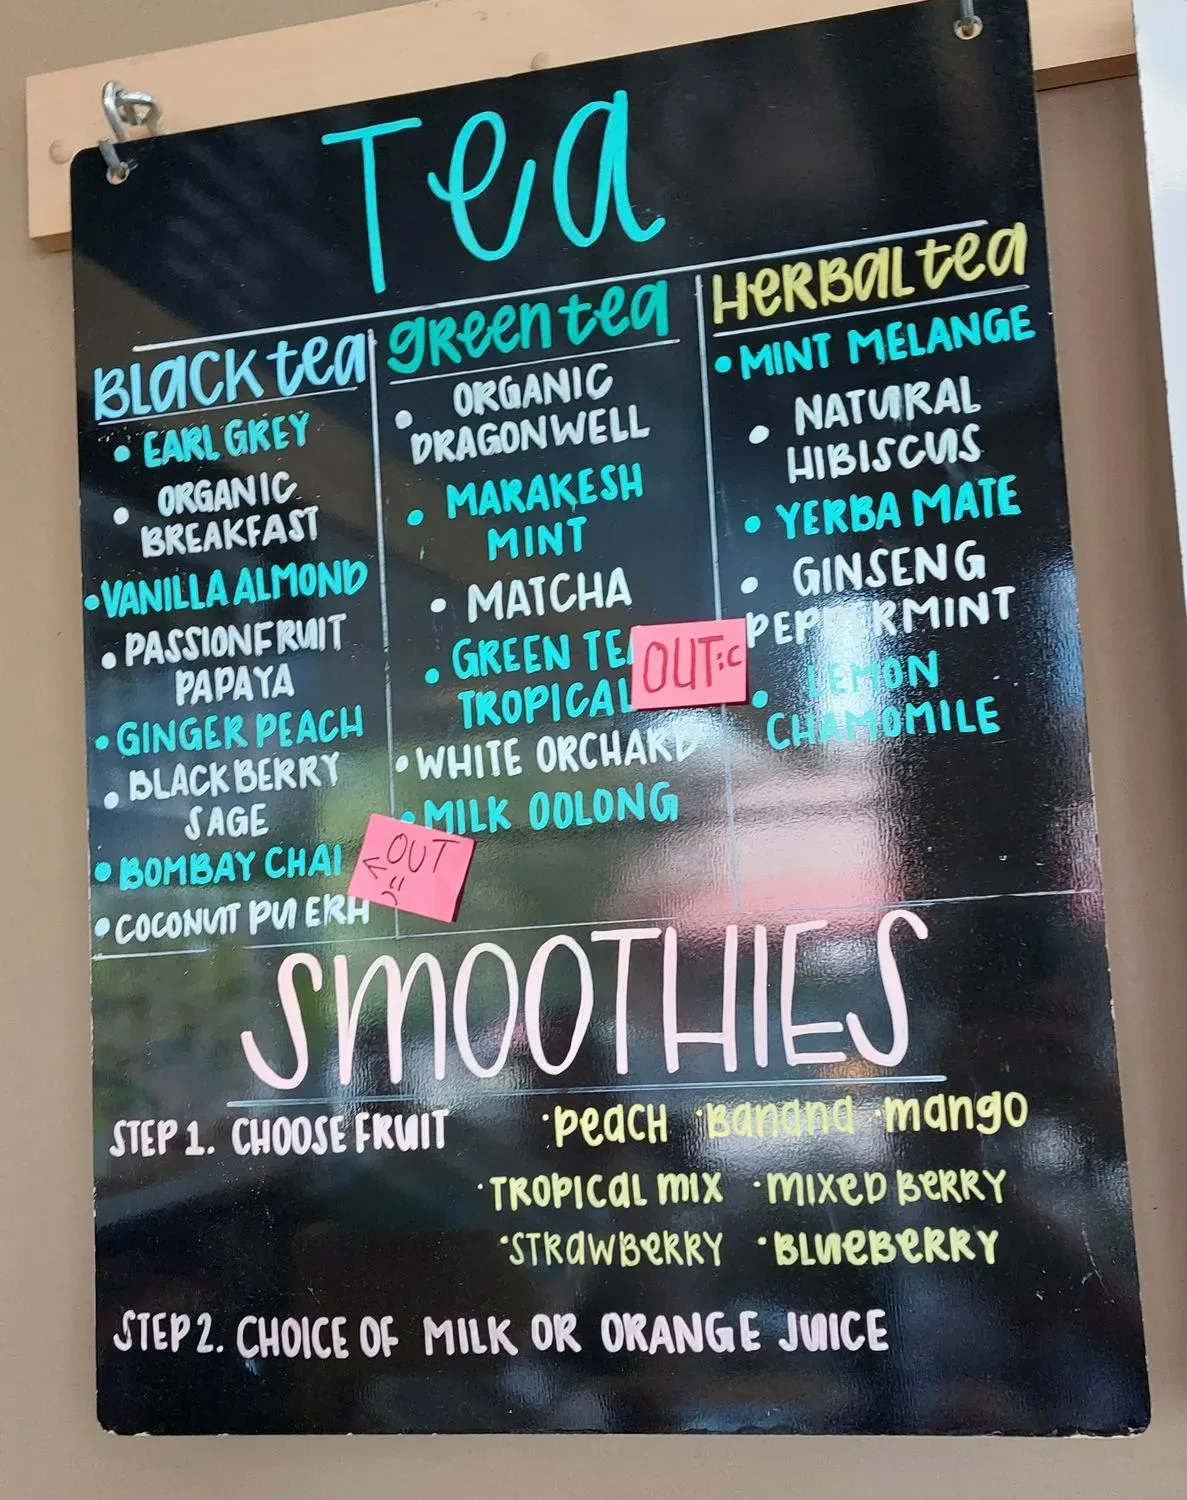 Tea
Black tea
• EARL GREY
• ORGANIC
BREAKFAST
• VANILLA ALMOND
• PASSIONFRUIT
PAPAYA
• GINGER PEACH
• BLACKBERRY
SAGE
• BOMBAY CHAI
• COCONUT PU ERH
OUT
<- :(
green tea
• ORGANIC
DRAGONWELL
• MARAKESH
MINT
• MATCHA
• GREEN TEA
TROPICAL
• WHITE ORCHARD
• MILK OOLONG
OUT :c
HERBAL tea
• MINT MELANGE
• NATURAL
HIBISCUS
• YERBA MATE
• GINSENG
PEPPERMINT
• LEMON
CHAMOMILE
SMOOTHIES
STEP 1. CHOOSE FRUIT · Peach · Banana · mango
· TROPICAL MIX · MIXED BERRY
· STRAWBERRY · BLUEBERRY
STEP 2. CHOICE OF MILK OR ORANGE JUICE